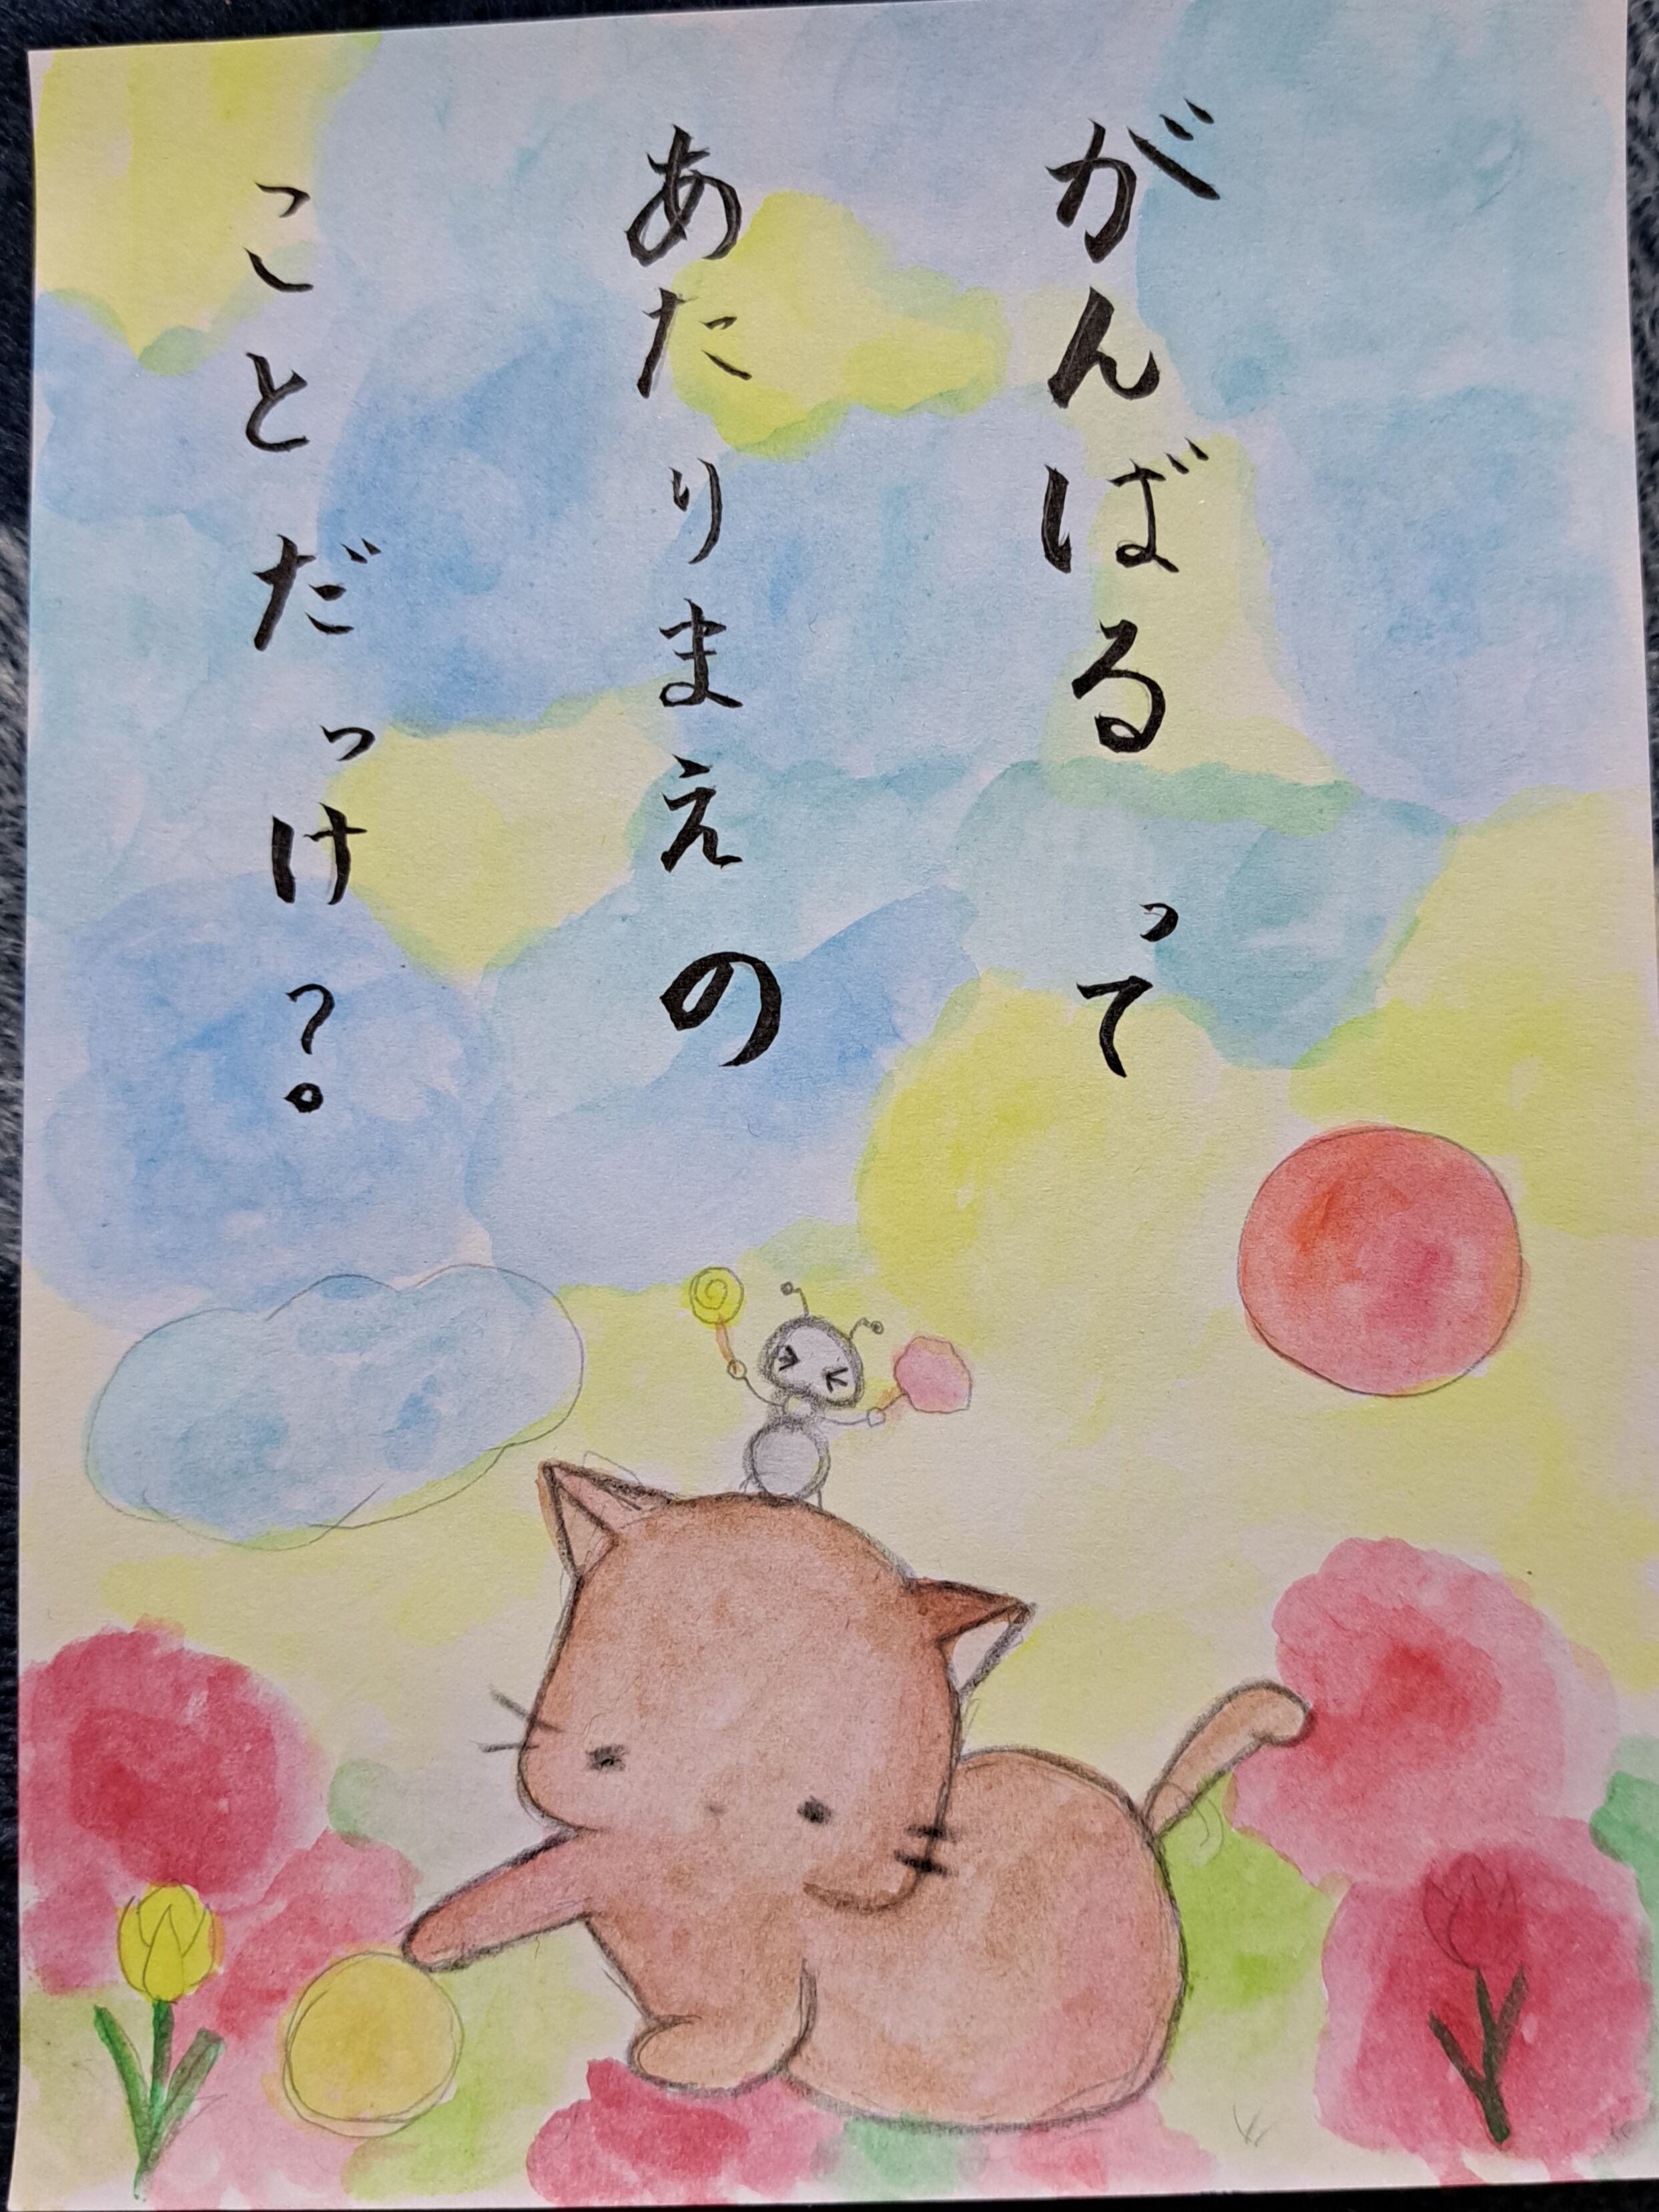 がんばるって
あたりまえの
ことだっけ?